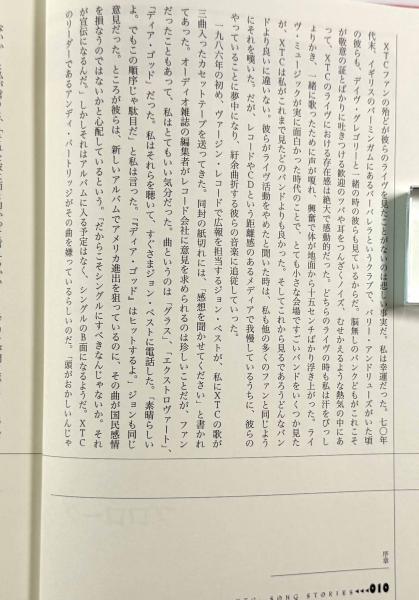 XTCファンの殆どが彼らのライヴを見たことがないのは悲しい事実だ。私は幸運だった。七〇年
代末、イギリスのバーミンガムにあるバーバレラというクラブで、バリー・アンドリューズがいた頃
の彼らも、デイヴ・グレゴリーと一緒の時の彼らも見ているからだ。脳無しのパンクどもがこれこそ
が敬意の証しとばかりに吐きつける歓迎のツバや耳をつんざくノイズ、むせかえるような熱気の中にあ
って、XTCのライヴにおける存在感は絶大で感動的だった。どちらのライヴの時も私は汗をびっし
ょりかき、一緒に歌ったために声が嗄れ、興奮で体が地面から十五センチばかり浮き上がった。ライ
ヴ・ミュージックが実に面白かった時代のことで、とても小さな会場ですごいバンドをいくつか見た
が、XTCは私がこれまで見たどのバンドよりも良かった。そしてこれから見るであろうどんなバン
ドより良いに違いない。彼らがライヴ活動をやめたと聞いた時は、私も他の多くのファンと同じよう
にそれを嘆いた。だが、レコードやCDという距離感のあるメディアで我慢しているうちに、彼らの
やっていることに夢中になり、紆余曲折する彼らの音楽に追従していった。
一九八六年の初め、ヴァージン・レコードで広報を担当するジョン・ベストが、私にXTCの歌が
三曲入ったカセットテープを送ってきた。同封の紙切れには、「感想を聞かせてください」と書かれ
てあった。オーディオ雑誌の編集者がレコード会社に意見を求められるのは珍しいことだが、ファン
だったこともあって、私はとてもいい気分だった。曲というのは「グラス」、「エクストロヴァート」、
「ディア・ゴッド」だった。私はそれらを聴いて、すぐさまジョン・ベストに電話した。「素晴らしい
よ。でもこの順序じゃ駄目だ」と私は言った。「『ディア・ゴッド』はヒットするよ。」ジョンも同じ
意見だった。ところが彼らは、新しいアルバムでアメリカ進出を狙っているのに、その曲が国民感情
を損なうのではないかと心配しているという。「だからこそシングルにすべきなんじゃないか。それ
が宣伝になるんだ。」しかしそれはアルバムに入る予定はなく、シングルのB面になるようだ。XTC
のリーダーであるアンディ・パートリッジがその曲を嫌っているらしいのだ。「頭がおかしいんじゃ
序章
SONG STORIES
010